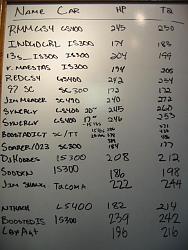 NAME CAR HP TQ
RMMGS4 GS400 245 250
INDYDGRL IS300 174 183
13s_IS300 IS300 204 199
r. MAESTAS IS300 194 205
REDGS4 GS400 242 254
97 SC SC300 172 172
JIM MEADOR SC430 240 272
SYNERGY GS400 20" 245 260
SYNERGY GS400 17" 246 253
BOOSTADDICT SC/TT
SOARER/023 SC300 184 177
DJHOBBES IS300 208 212
SODDEN IS300 186 198
JIM SHAW TACOMA 222 244
NTHACH LS400 182 214
BOOSTEDIS IS300 239 242
196 216